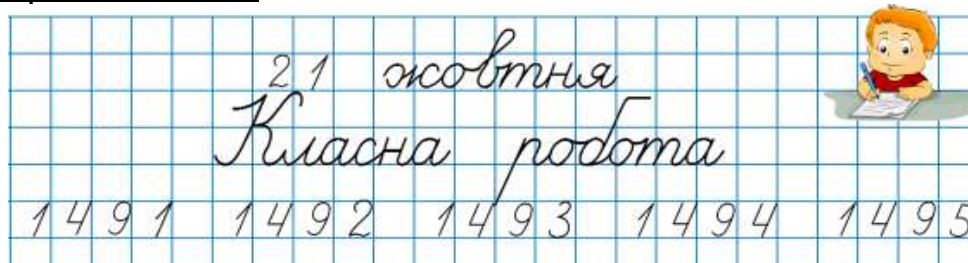 21 жовтня
Класна робота
1491 1492 1493 1494 1495